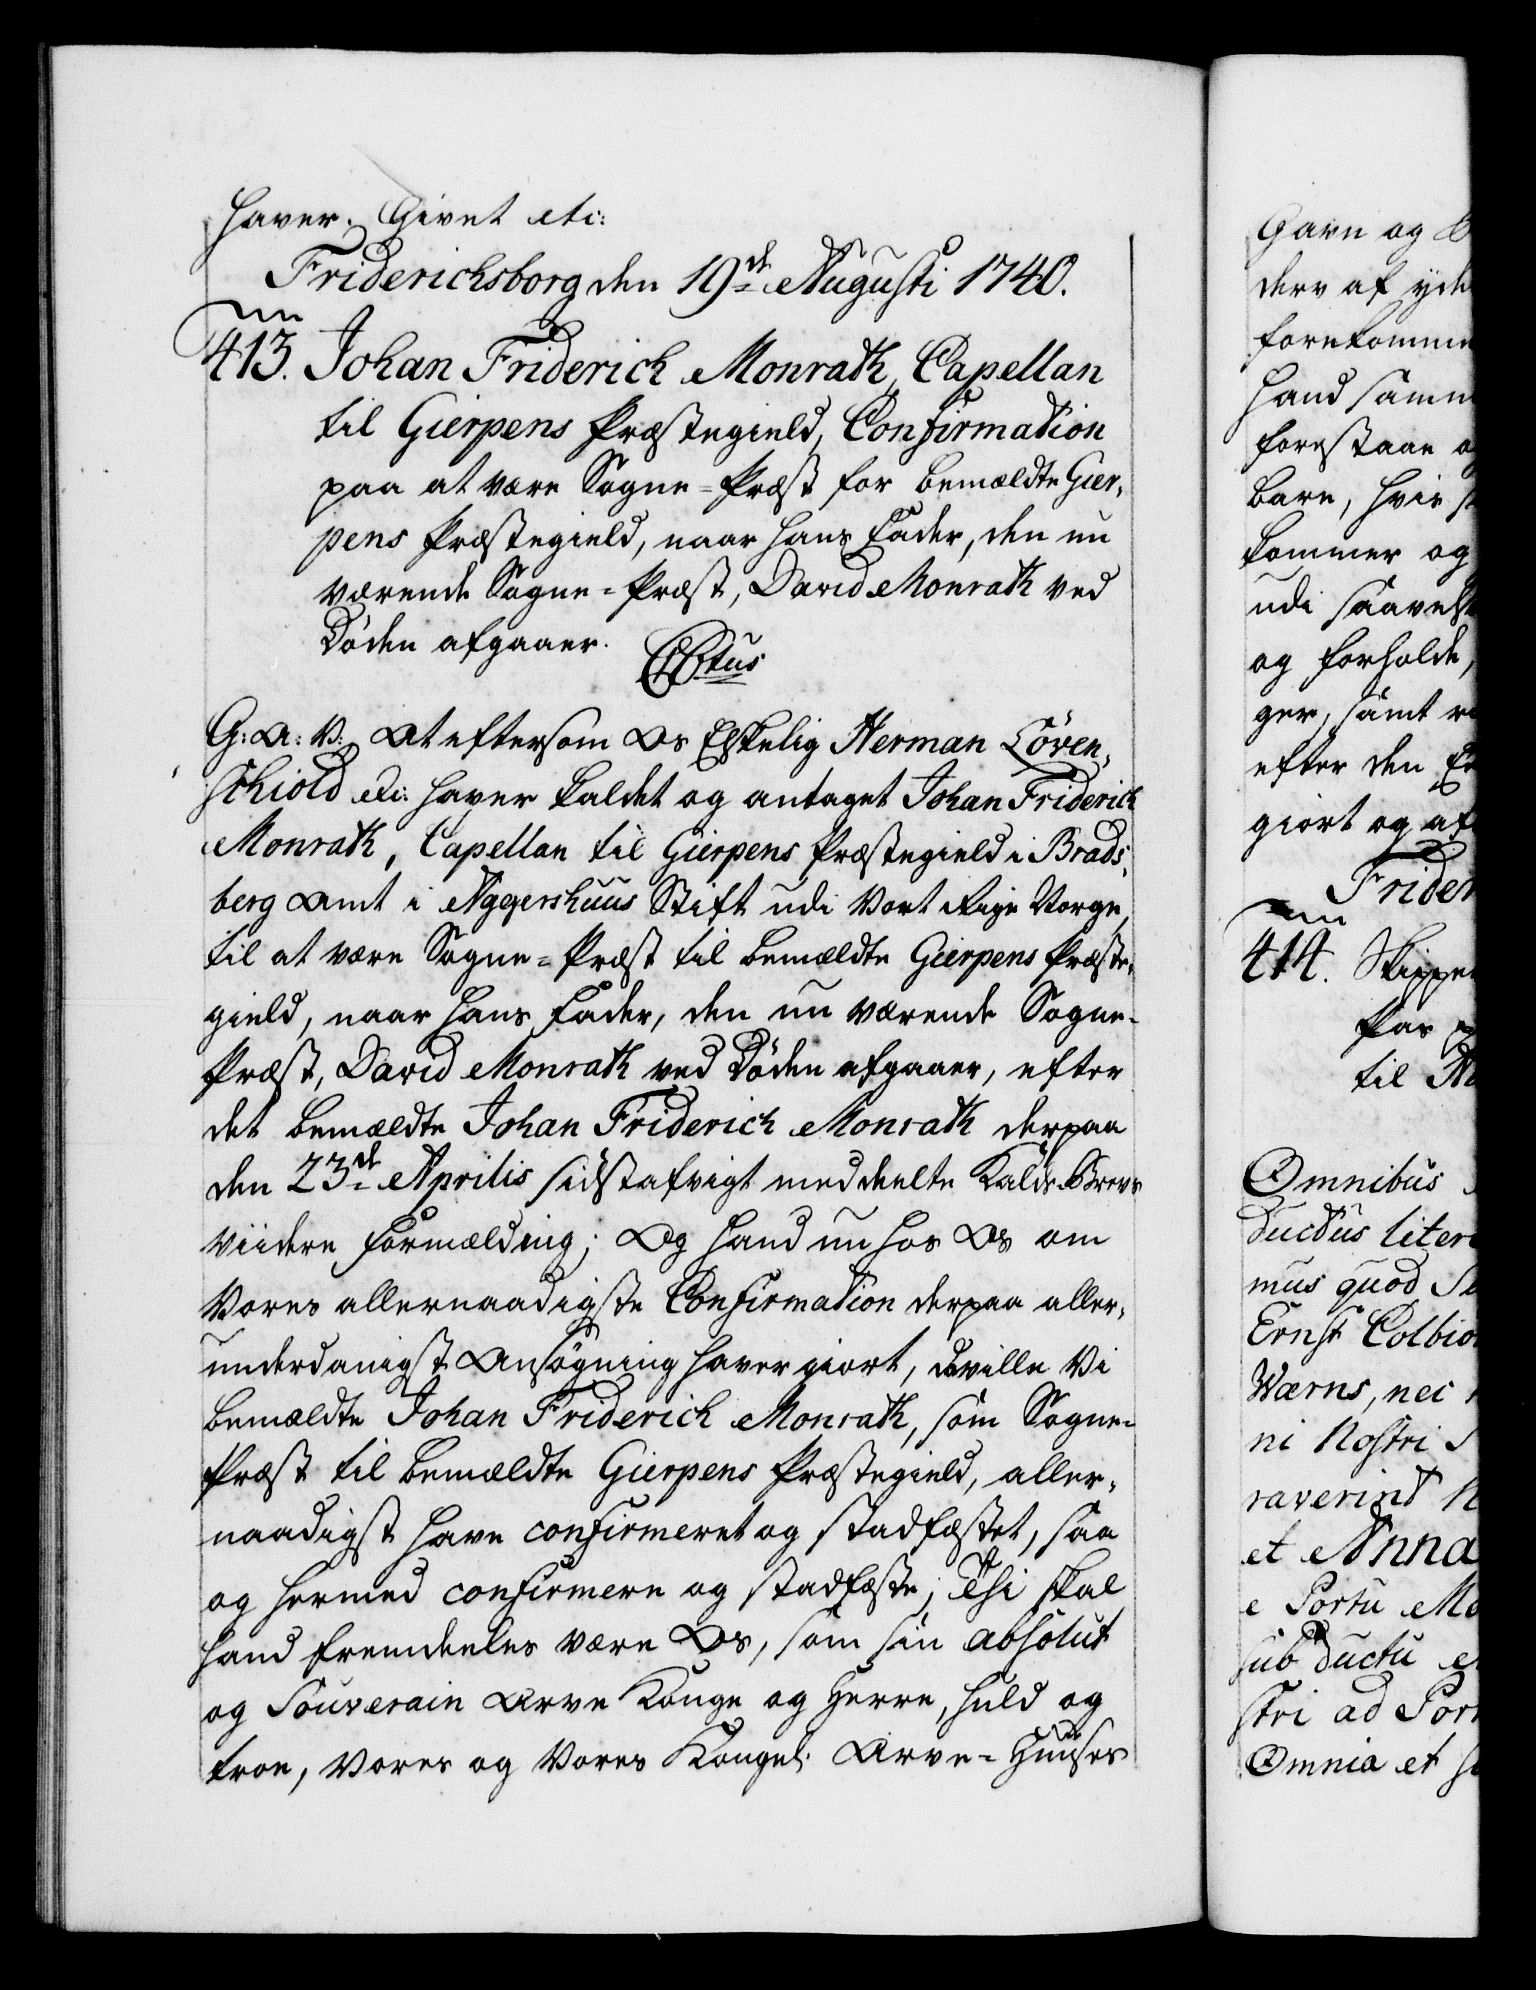 haver. Givet etc:
Friderichsborg den 19de Augusti 1740.
413. Johan Friderich Monrath, Capellan
til Gierpens Præstegield, Confirmation
paa at være Sogne-Præst for bemældte Gier,
pens Præstegield, naar hans Fader, den nu
værende Sogne-Præst, David Monrath ved
Døden afgaaer.
G: A: V: At eftersom Os Elskelig Herman Löven,
schiold etc: haver kaldet og antaget Johan Friderich
Monrath, Capellan til Gierpens Præstegield i Brads,
berg Amt i Aggershuus Stift udi Vort Rige Norge,
til at være Sogne-Præst til bemældte Gierpens Præste,
gield, naar hans Fader, den nu værende Sogne-
Præst, David Monrath ved Døden afgaaer, efter
det bemældte Johan Friderich Monrath derpaa
den 23de Aprilis sidstafvigt meddeelte Kalds-Brevs
viidere formælding; Og hand nu hos Os om
Vores allernaadigste Confirmation derpaa aller,
underdanigst Ansøgning haver giort, da ville Vi
bemældte Johan Friderich Monrath, som Sogne-
Præst til bemældte Gierpens Præstegield, aller,
naadigst have confirmeret og stadfæstet, saa
og hermed confirmere og stadfæste; Thi skal
hand fremdeeles være Os, som sin absolut
og Souverain Arve Konge og Herre, huld og
troe, Vores og Vores Kongel. Arve-Huuses
Gavn og
derv af
hand
bare, hvis
kommer og
udi
og forholde,
ger, samt
efter den
giort og
414.
til
Omnibus
ductus
mus quod
Ernst
Wærns, nec
ni Nostri
raverint
et Anna
e Portu
sub ductu
stri ad
Omnia et